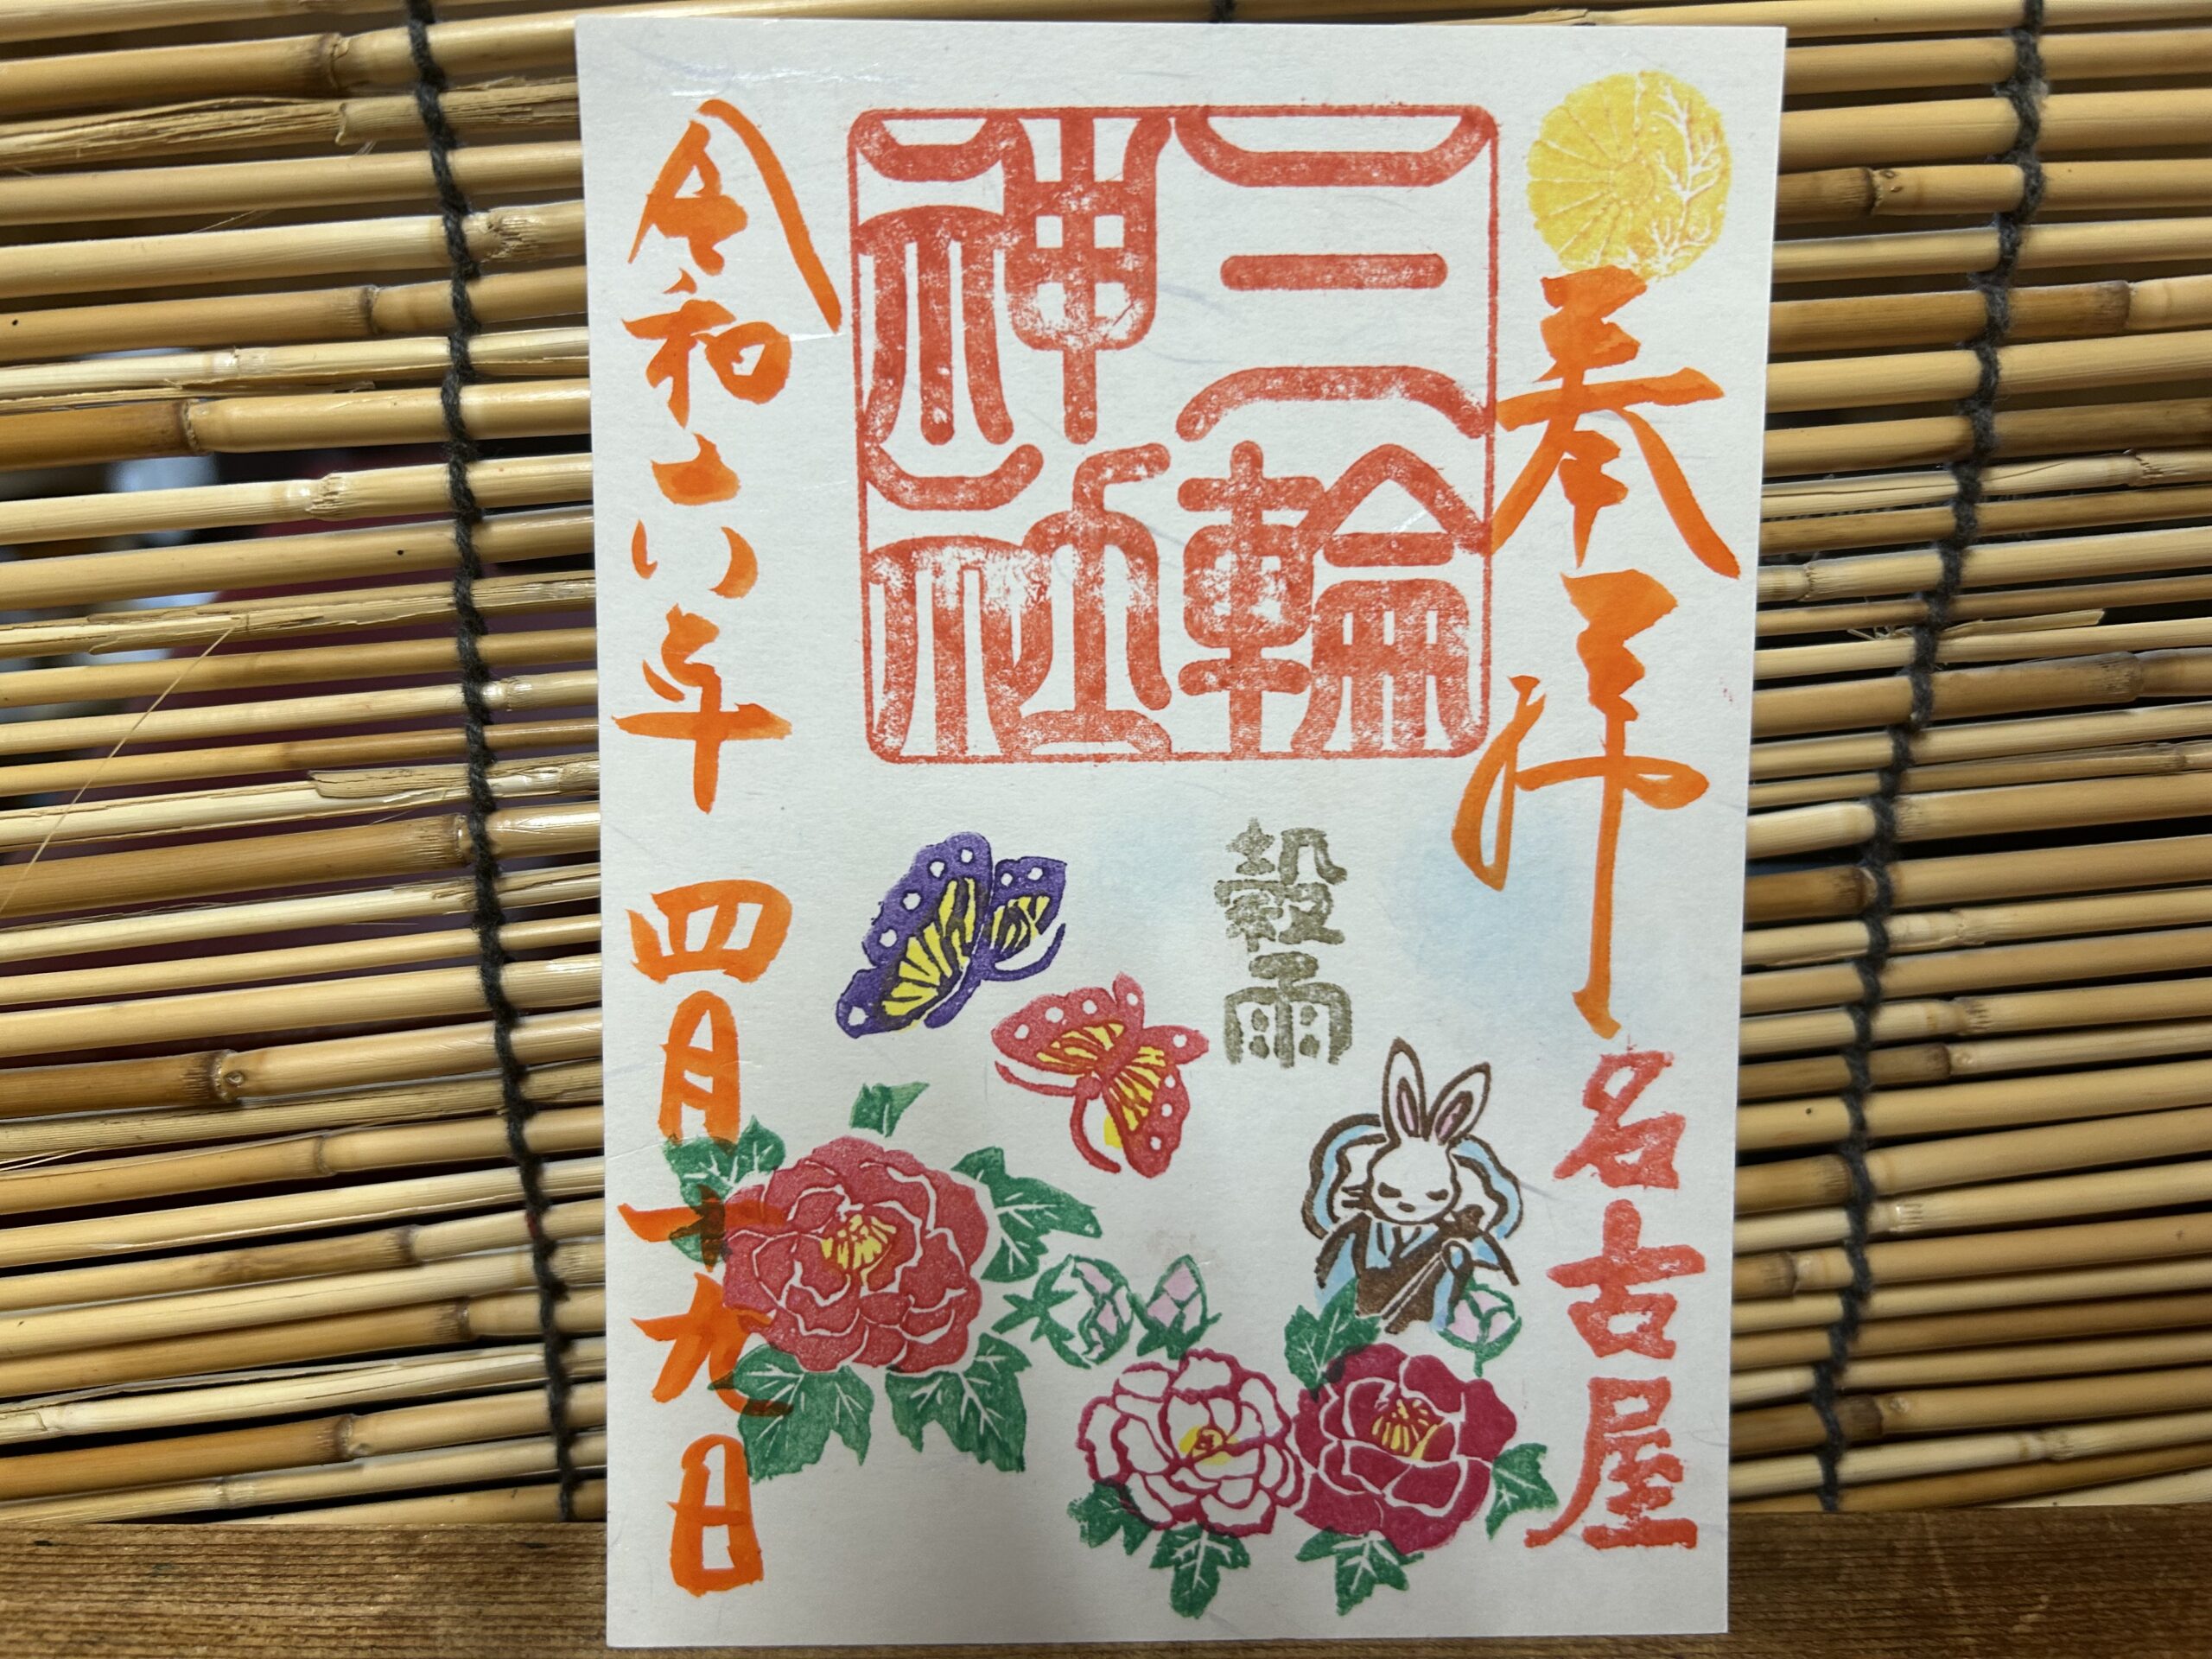 奉拝
名古屋
三輪
神社
穀雨
令和六年 四月十九日